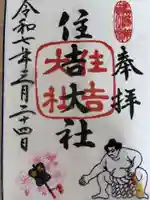 奉拝
住吉大社
住吉
大社
令和七年三月二十四日